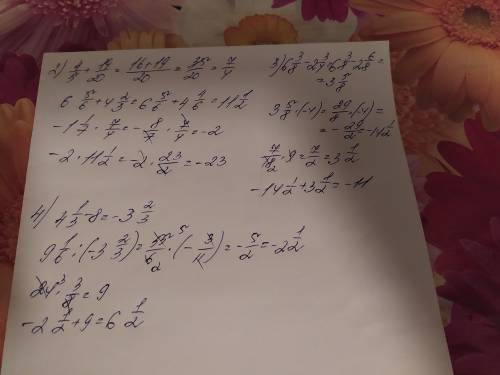 2) 4/5 + 19/20 = (16+19)/20 = 35/20 = 7/4
6 5/6 + 4 2/3 = 6 5/6 + 4 4/6 = 11 1/2
-1 1/7 · 7/4 = -8/7 · 7/4 = -2
-2 · 11 1/2 = -2 · 23/2 = -23
3) 6 3/8 - 2 3/4 = 6 3/8 - 2 6/8 =
= 3 5/8
3 5/8 · (-4) = 29/8 · (-4) =
= -29/2 = -14 1/2
7/18 · 9 = 7/2 = 3 1/2
-14 1/2 + 3 1/2 = -11
4) 4 1/3 - 8 = -3 2/3
9 1/6 : (-3 2/3) = 55/6 · (-3/11) = -5/2 = -2 1/2
24 · 3/8 = 9
-2 1/2 + 9 = 6 1/2